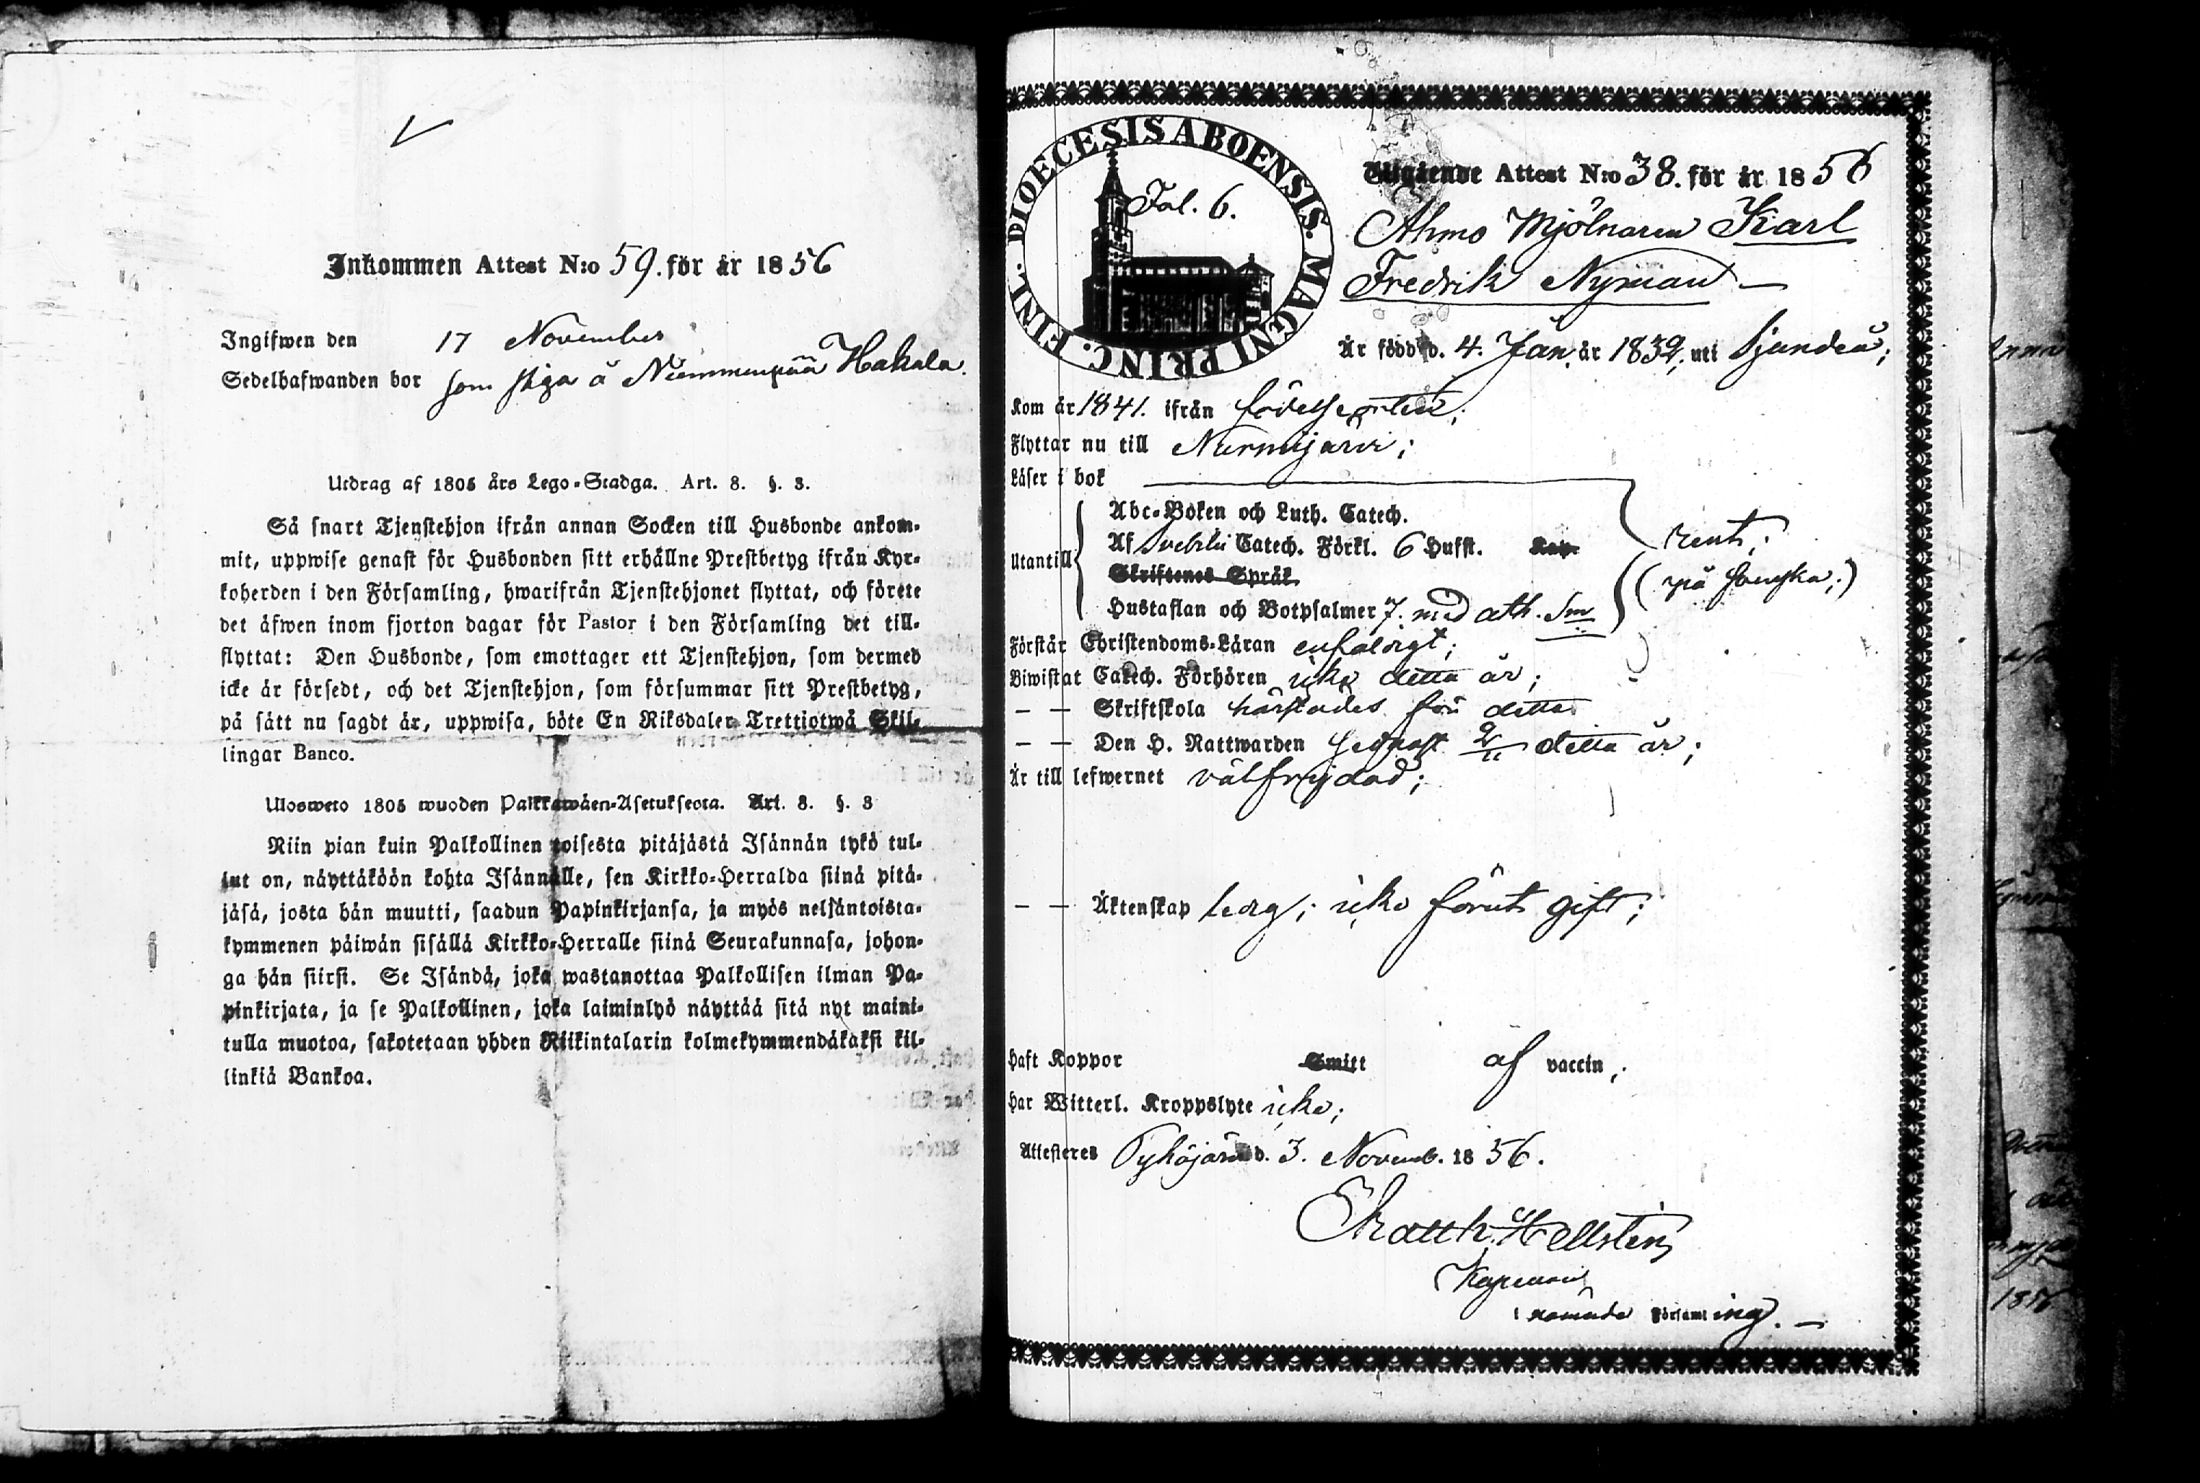 Inkommen Attest N:o 59. för år 1856
Ingifwen den 17 November
Sedelhafwanden bor som piga å Niemmenpää Hakala.
Utdrag af 1805 års Lego-Stadga. Art. 8. §. 3.
Så snart Tjenstehjon ifrån annan Socken till Husbonde ankom-
mit, uppwise genast för Husbonden sitt erhållne Prestbetyg ifrån Kyr-
koherden i den Församling, hwarifrån Tjenstehjonet flyttat, och förete
det äfwen inom fjorton dagar för Pastor i den Församling det till-
flyttat: Den Husbonde, som emottager ett Tjenstehjon, som dermed
icke är försedt, och det Tjenstehjon, som försummar sitt Prestbetyg,
på sätt nu sagdt är, uppwisa, böte En Riksdaler Trettiotwå Skil-
lingar Banco.
Ulosweto 1805 wuoden Palkkawäen-Asetuksesta. Art. 8. §. 3
Niin pian kuin Palkollinen toisesta pitäjästä Isännän tykö tul-
lut on, näyttäköön kohta Isännälle, sen Kirkko-Herralda siinä pitä-
jäsä, josta hän muutti, saadun Papinkirjansa, ja myös neljäntoista-
kymmenen päiwän sisällä Kirkko-Herralle siinä Seurakunnasa, johon-
ga hän siirsi. Se Isändä, joka wastanottaa Palkollisen ilman Pa-
pinkirjata, ja se Palkollinen, joka laiminlyö näyttää sitä nyt maini-
tulla muotoa, sakotetaan yhden Riikintalarin kolmekymmendäkaksi kil-
linkiä Bankoa.
DIOECESIS ABOENSIS. MAGNI PRINC. FINL.
Fol. 6.
Utgående Attest N:o 38. för år 1856
Ahmo Mjölnaren Karl
Fredrik Nyman
Är född d. 4. Jan. år 1839; uti Sjundeå;
Kom år 1841. ifrån födelseorten;
Flyttar nu till Nurmijärvi;
Läser i bok
Abc-Boken och Luth. Catech.
Utantill Af Svebilii Catech. Förkl. 6 Hufst. Kap. rent;
Skriftenes Språk (på svenska;)
Hustaflan och Botpsalmer 7. med ath. Sm
Förstår Christendoms-Läran enfaldigt;
Biwistat Catech. Förhören icke detta år;
— — Skriftskola härstädes för detta
— — Den H. Nattwarden senast detta år;
Är till lefwernet välfrejdad;
— — Äktenskap ledig; icke förut gift;
Haft Koppor Smitt af vaccin;
Har Witterl. Kroppslyte icke;
Attesteres Pyhäjärvi d. 3. Novemb. 1856.
Matth. Hellstén
Kapellan
i nämnde Församling.